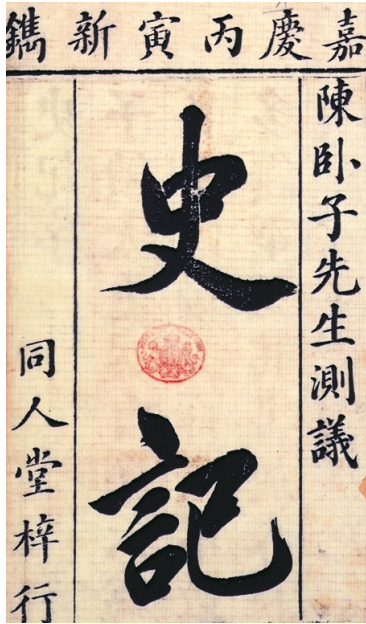 嘉慶丙寅新鐫
陳卧子先生測議
史記
同人堂梓行